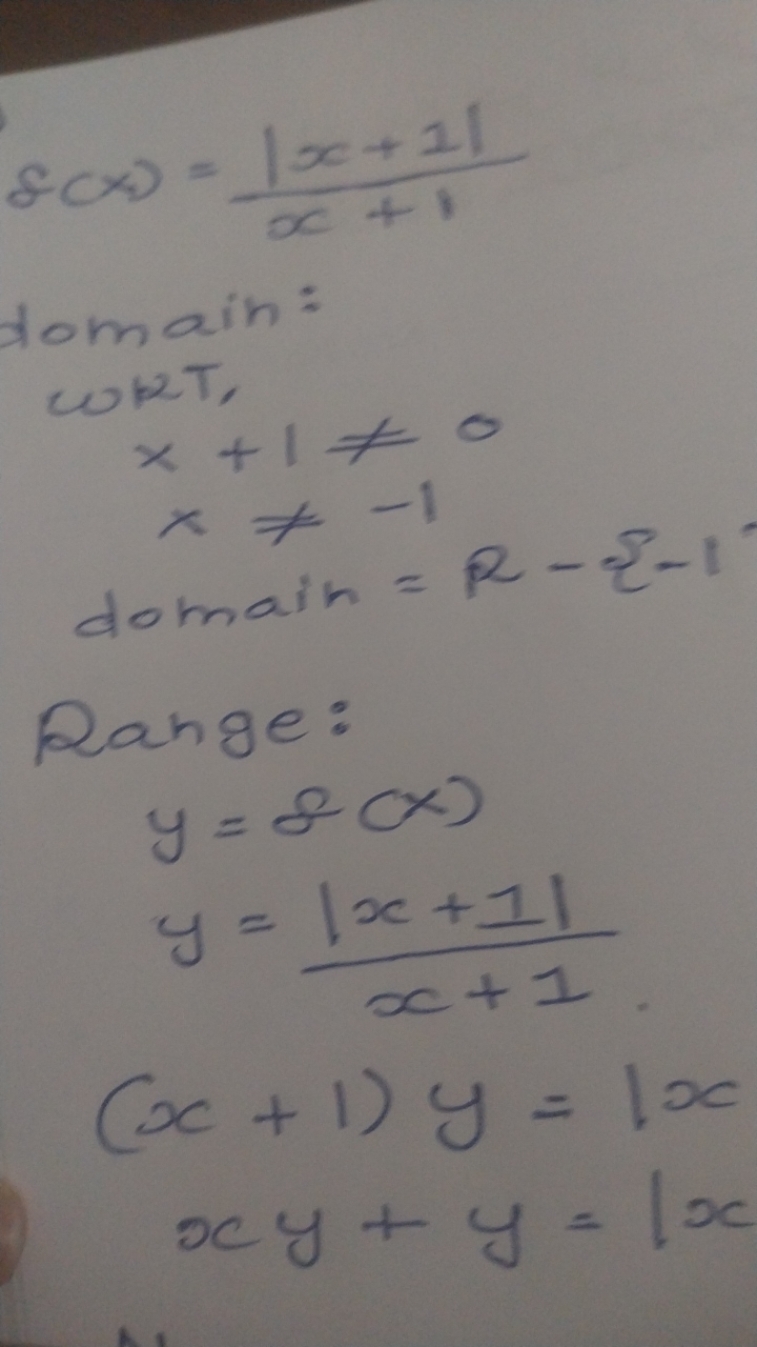 f(x) = |x+1| / x+1
domain:
WKT,
x + 1 ≠ 0
x ≠ -1
domain = R - {-1
Range:
y = f(x)
y = |x+1| / x+1
(x+1) y = |x
xy + y = |x